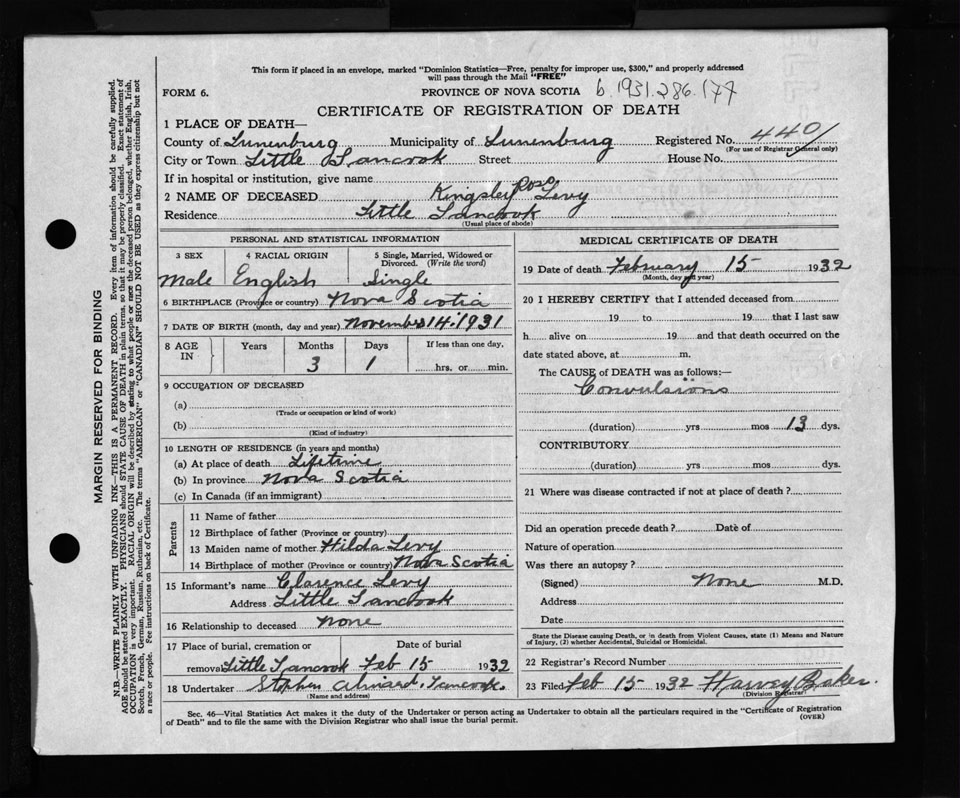 This form if placed in an envelope, marked "Dominion Statistics—Free, penalty for improper use, $300," and properly addressed
will pass through the Mail "FREE"
FORM 6. PROVINCE OF NOVA SCOTIA b.1931.286.177
CERTIFICATE OF REGISTRATION OF DEATH
1 PLACE OF DEATH—
County of Lunenburg Municipality of Lunenburg Registered No. 440
(For use of Registrar General only)
City or Town Little Tancook Street House No.
If in hospital or institution, give name
2 NAME OF DECEASED Kingsley Levy
Residence Little Tancook
(Usual place of abode)
PERSONAL AND STATISTICAL INFORMATION
3 SEX 4 RACIAL ORIGIN 5 Single, Married, Widowed or
Divorced. (Write the word)
Male English Single
6 BIRTHPLACE (Province or country) Nova Scotia
7 DATE OF BIRTH (month, day and year) November 14, 1931
8 AGE IN Years Months Days If less than one day,
3 1 hrs. or min.
9 OCCUPATION OF DECEASED
(a)
(Trade or occupation or kind of work)
(b)
(Kind of industry)
10 LENGTH OF RESIDENCE (in years and months)
(a) At place of death Lifetime
(b) In province Nova Scotia
(c) In Canada (if an immigrant)
Parents
11 Name of father
12 Birthplace of father (Province or country)
13 Maiden name of mother Hilda Levy
14 Birthplace of mother (Province or country) Nova Scotia
15 Informant's name Clarence Levy
Address Little Tancook
16 Relationship to deceased None
17 Place of burial, cremation or Date of burial
removal Little Tancook Feb 15 1932
18 Undertaker Stephen Tancook.
(Name and address)
MEDICAL CERTIFICATE OF DEATH
19 Date of death February 15 1932
(Month, day and year)
20 I HEREBY CERTIFY that I attended deceased from
19 to 19 that I last saw
h alive on 19 and that death occurred on the
date stated above, at m.
The CAUSE of DEATH was as follows:—
Convulsions
(duration) yrs mos 13 dys.
CONTRIBUTORY
(duration) yrs mos dys.
21 Where was disease contracted if not at place of death?
Did an operation precede death? Date of
Nature of operation
Was there an autopsy?
(Signed) None M.D.
Address
Date
State the Disease causing Death, or in death from Violent Causes, state (1) Means and Nature
of Injury, (2) whether Accidental, Suicidal or Homicidal.
22 Registrar's Record Number
23 Filed Feb 15 1932 Harvey Baker.
(Division Registrar)
Sec. 46—Vital Statistics Act makes it the duty of the Undertaker or person acting as Undertaker to obtain all the particulars required in the "Certificate of Registration
of Death" and to file the same with the Division Registrar who shall issue the burial permit. (OVER)
MARGIN RESERVED FOR BINDING
N.B.—WRITE PLAINLY WITH UNFADING INK—THIS IS A PERMANENT RECORD. Every item of information should be carefully supplied.
AGE should be stated EXACTLY. PHYSICIANS should STATE CAUSE OF DEATH in plain terms, so that it may be properly classified. Exact statement of
OCCUPATION is very important. RACIAL ORIGIN will be described by stating to what people or race the deceased person belonged, whether English, Irish,
Scotch, French, German, Russian, Ruthenian, etc. The terms "AMERICAN" or "CANADIAN" SHOULD NOT BE USED as they express citizenship but not
a race or people. See instructions on back of Certificate.